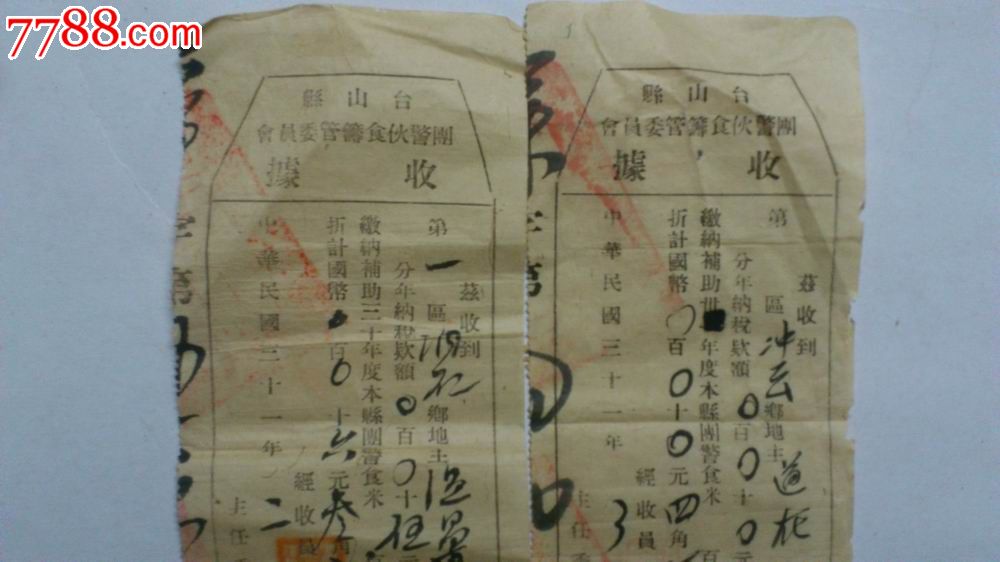 7788.com
台山縣
團警伙食籌管委員會
收據
茲收到
第一區鄉地主
分年納稅欵額0百0十伍元
繳納補助三十年度本縣團警食米
折計國幣0百0十六元叁角
經收員
中華民國三十一年二
主任
字第
台山縣
團警伙食籌管委員會
收據
茲收到
第區冲云鄉地主道
分年納稅欵額0百0十0元
繳納補助世年度本縣團警食米
折計國幣0百0十0元四角
經收員
中華民國三十一年3
主任委
字第